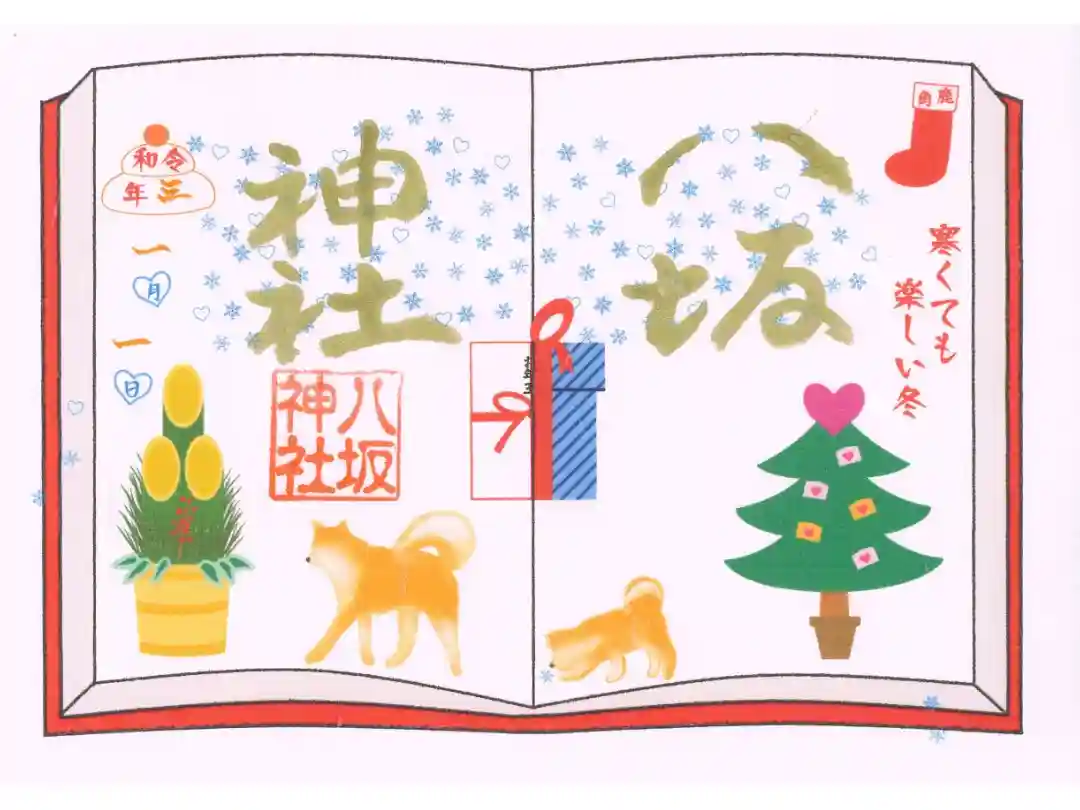 鹿角
寒くても
楽しい冬
八坂
神社
八坂
神社
令和
三年
一月
一日